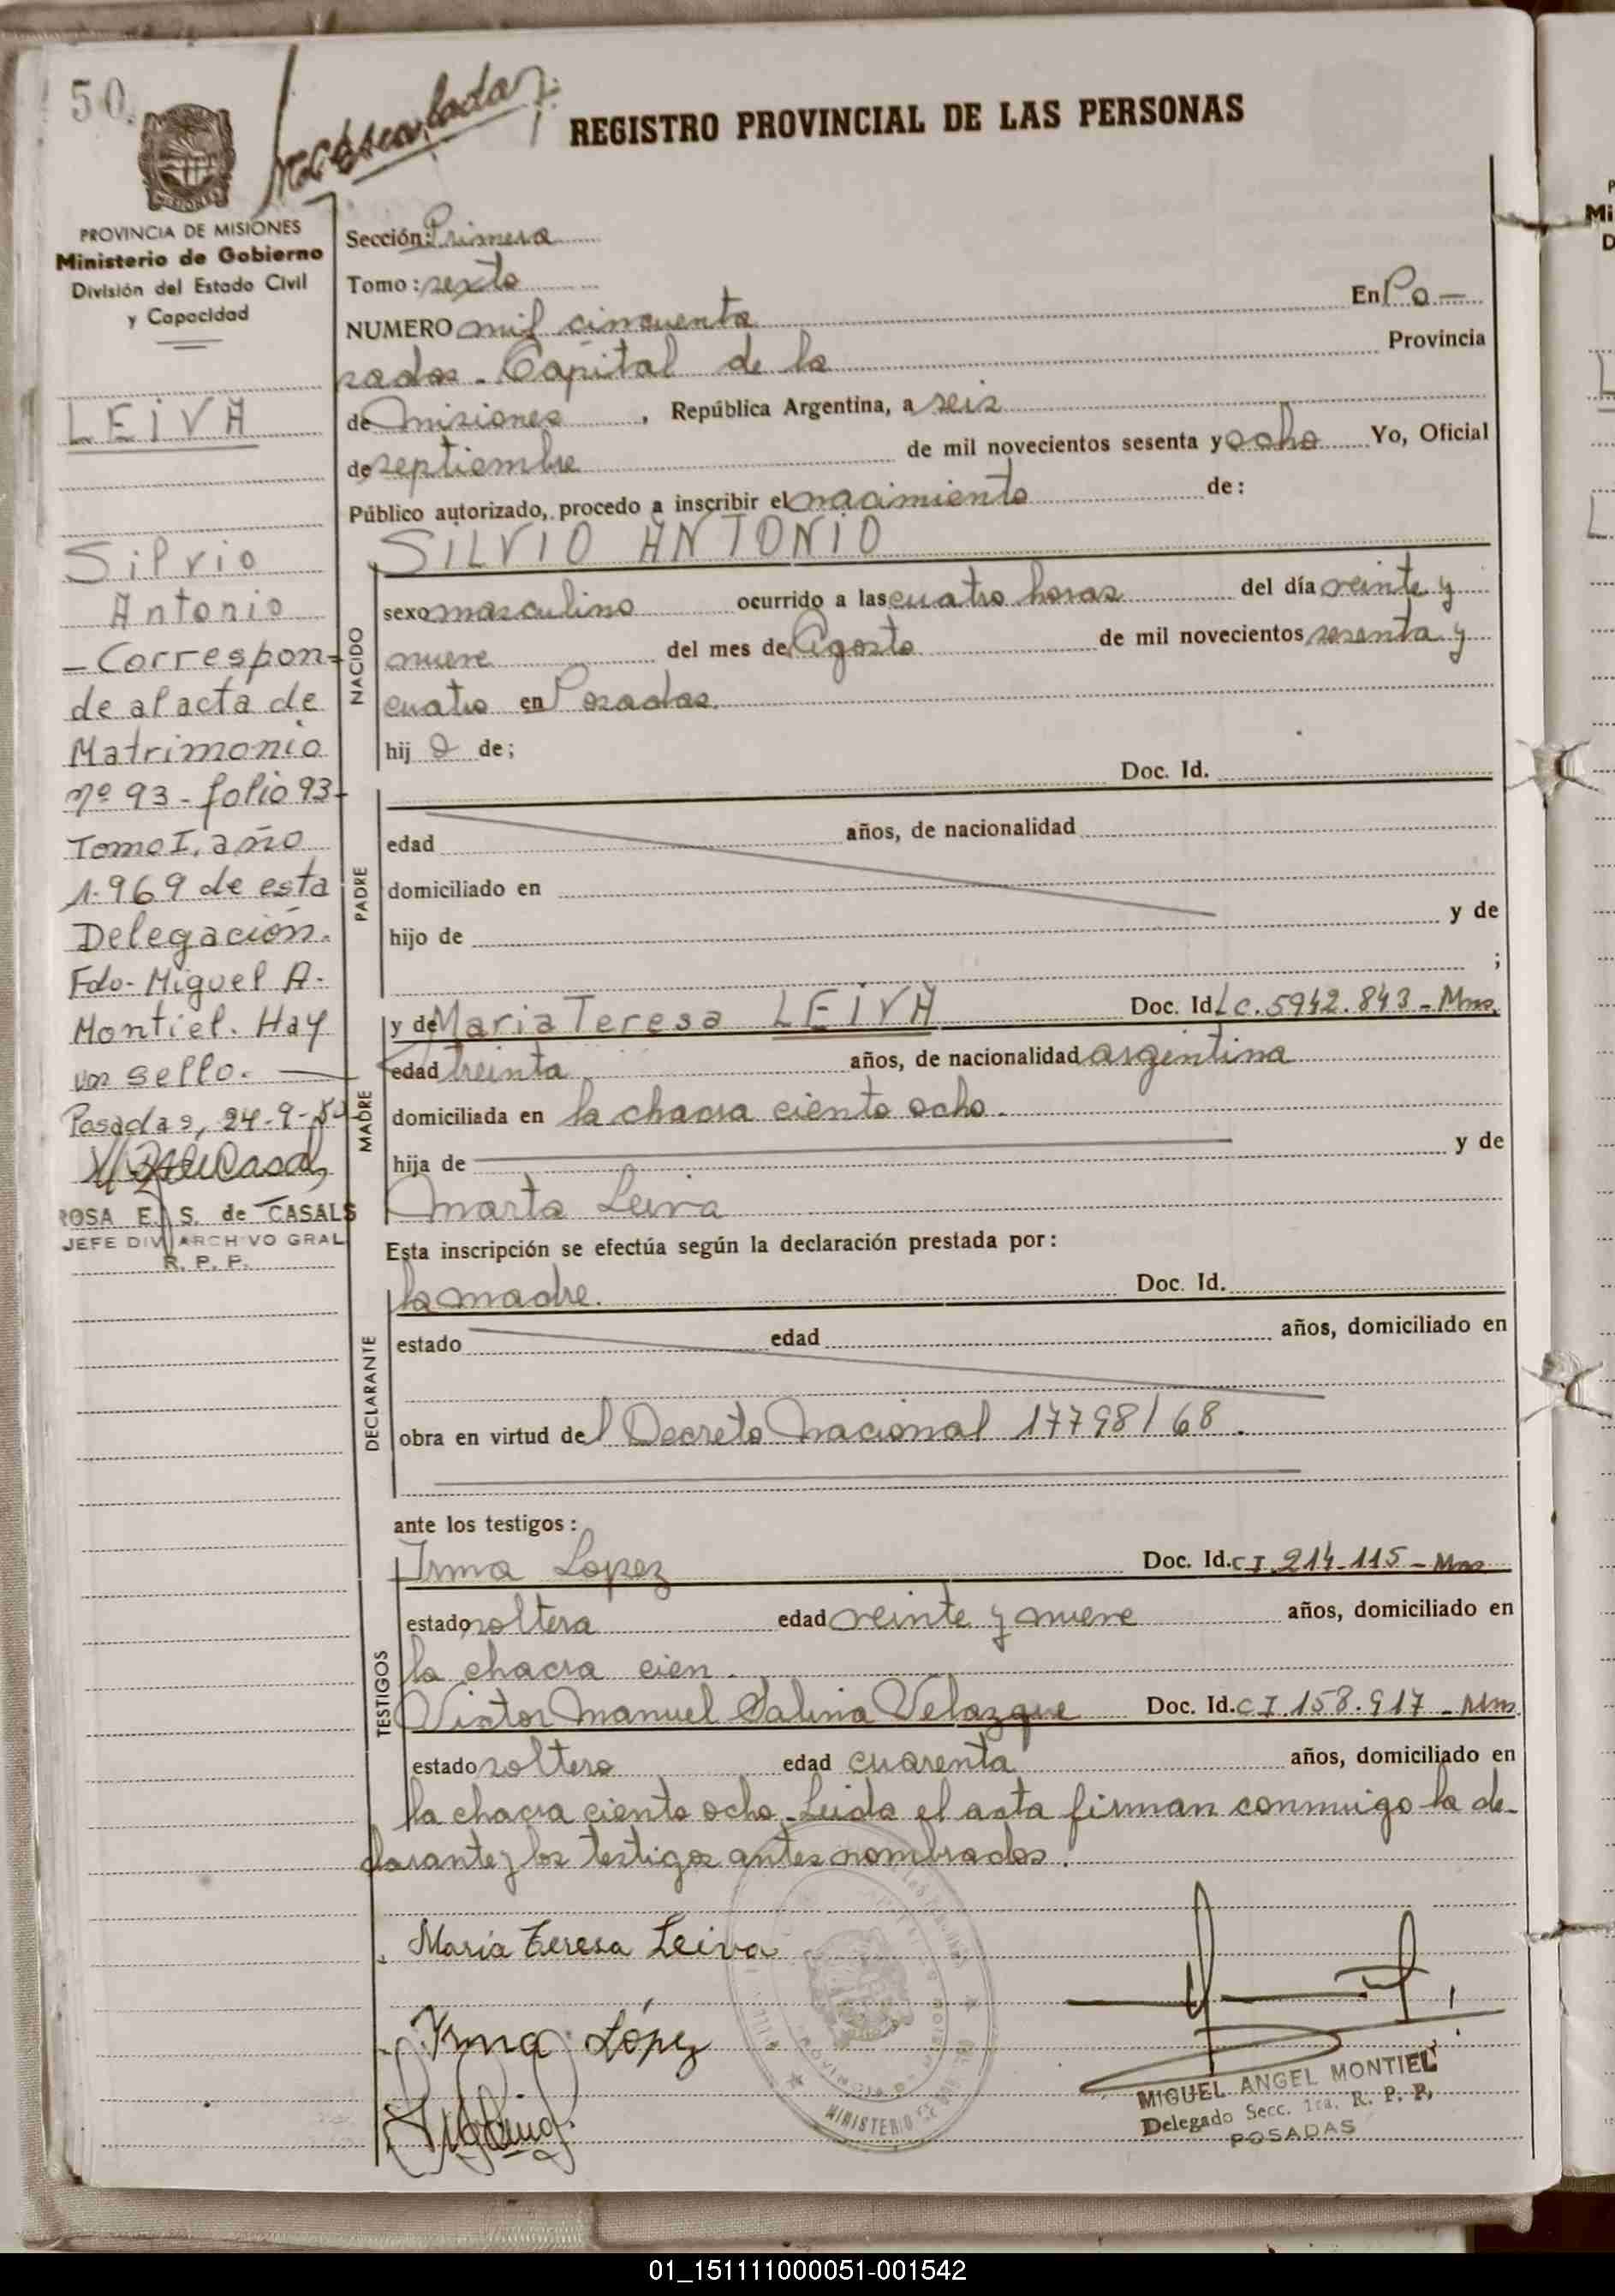 50.
REGISTRO PROVINCIAL DE LAS PERSONAS
PROVINCIA DE MISIONES
Ministerio de Gobierno
División del Estado Civil
y Capacidad
LEIVA
Silvio
Antonio
- Correspon-
de al acta de
Matrimonio
nº 93 - folio 93-
Tomo I, año
1.969 de esta
Delegación.
Fdo- Miguel A.
Montiel. Hay
un sello.
Posadas, 24-9-
ROSA E. S. de CASALS
JEFE DIV ARCHIVO GRAL
R. P. P.
Sección: Primera
Tomo: sexto
NUMERO mil cincuenta En Po-
sadas - Capital de la Provincia
de Misiones, República Argentina, a seis
de septiembre de mil novecientos sesenta y ocho Yo, Oficial
Público autorizado, procedo a inscribir el nacimiento de:
SILVIO ANTONIO
NACIDO
sexo masculino ocurrido a las cuatro horas del día veinte y
nueve del mes de Agosto de mil novecientos sesenta y
cuatro en Posadas.
hij o de;
Doc. Id.
PADRE
edad años, de nacionalidad
domiciliado en
hijo de y de
;
MADRE
y de Maria Teresa LEIVA Doc. Id. L C. 5942.843 - Mns.
edad treinta años, de nacionalidad argentina
domiciliada en la chacra ciento ocho.
hija de y de
Marta Leiva
Esta inscripción se efectúa según la declaración prestada por:
DECLARANTE
la madre. Doc. Id.
estado edad años, domiciliado en
obra en virtud del Decreto Nacional 17798/68.
ante los testigos:
TESTIGOS
Irma Lopez Doc. Id. C I. 214-115 - Mns
estado soltera edad veinte y nueve años, domiciliado en
la chacra cien.
Victor Manuel Salina Velazque Doc. Id. C I. 158.917 - Mns.
estado soltero edad cuarenta años, domiciliado en
la chacra ciento ocho. Leida el acta firman conmigo la de-
clarante y los testigos antes nombrados.
Maria Teresa Leiva
Irma López
MINISTERIO
MIGUEL ANGEL MONTIEL
Delegado Secc. 1ra. R. P. P.
POSADAS
01_151111000051-001542